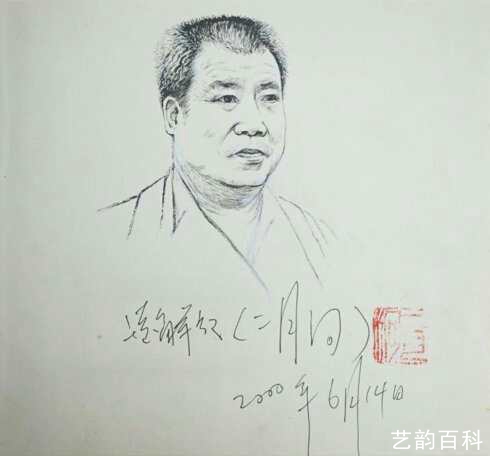 凌解放（二月河）
2000年6月14日
艺韵百科